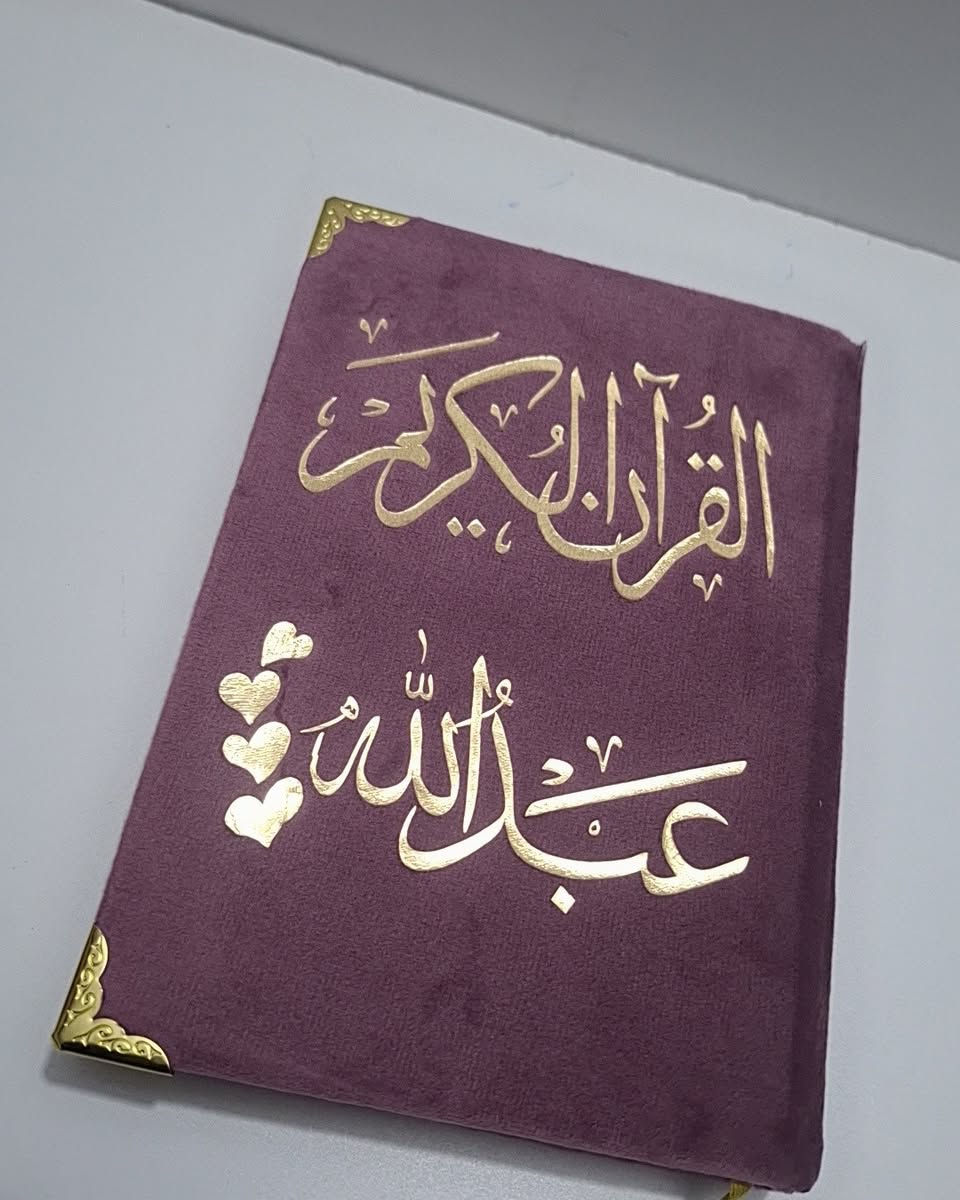 القُرآن الكُريم
عَبدُاللّٰه